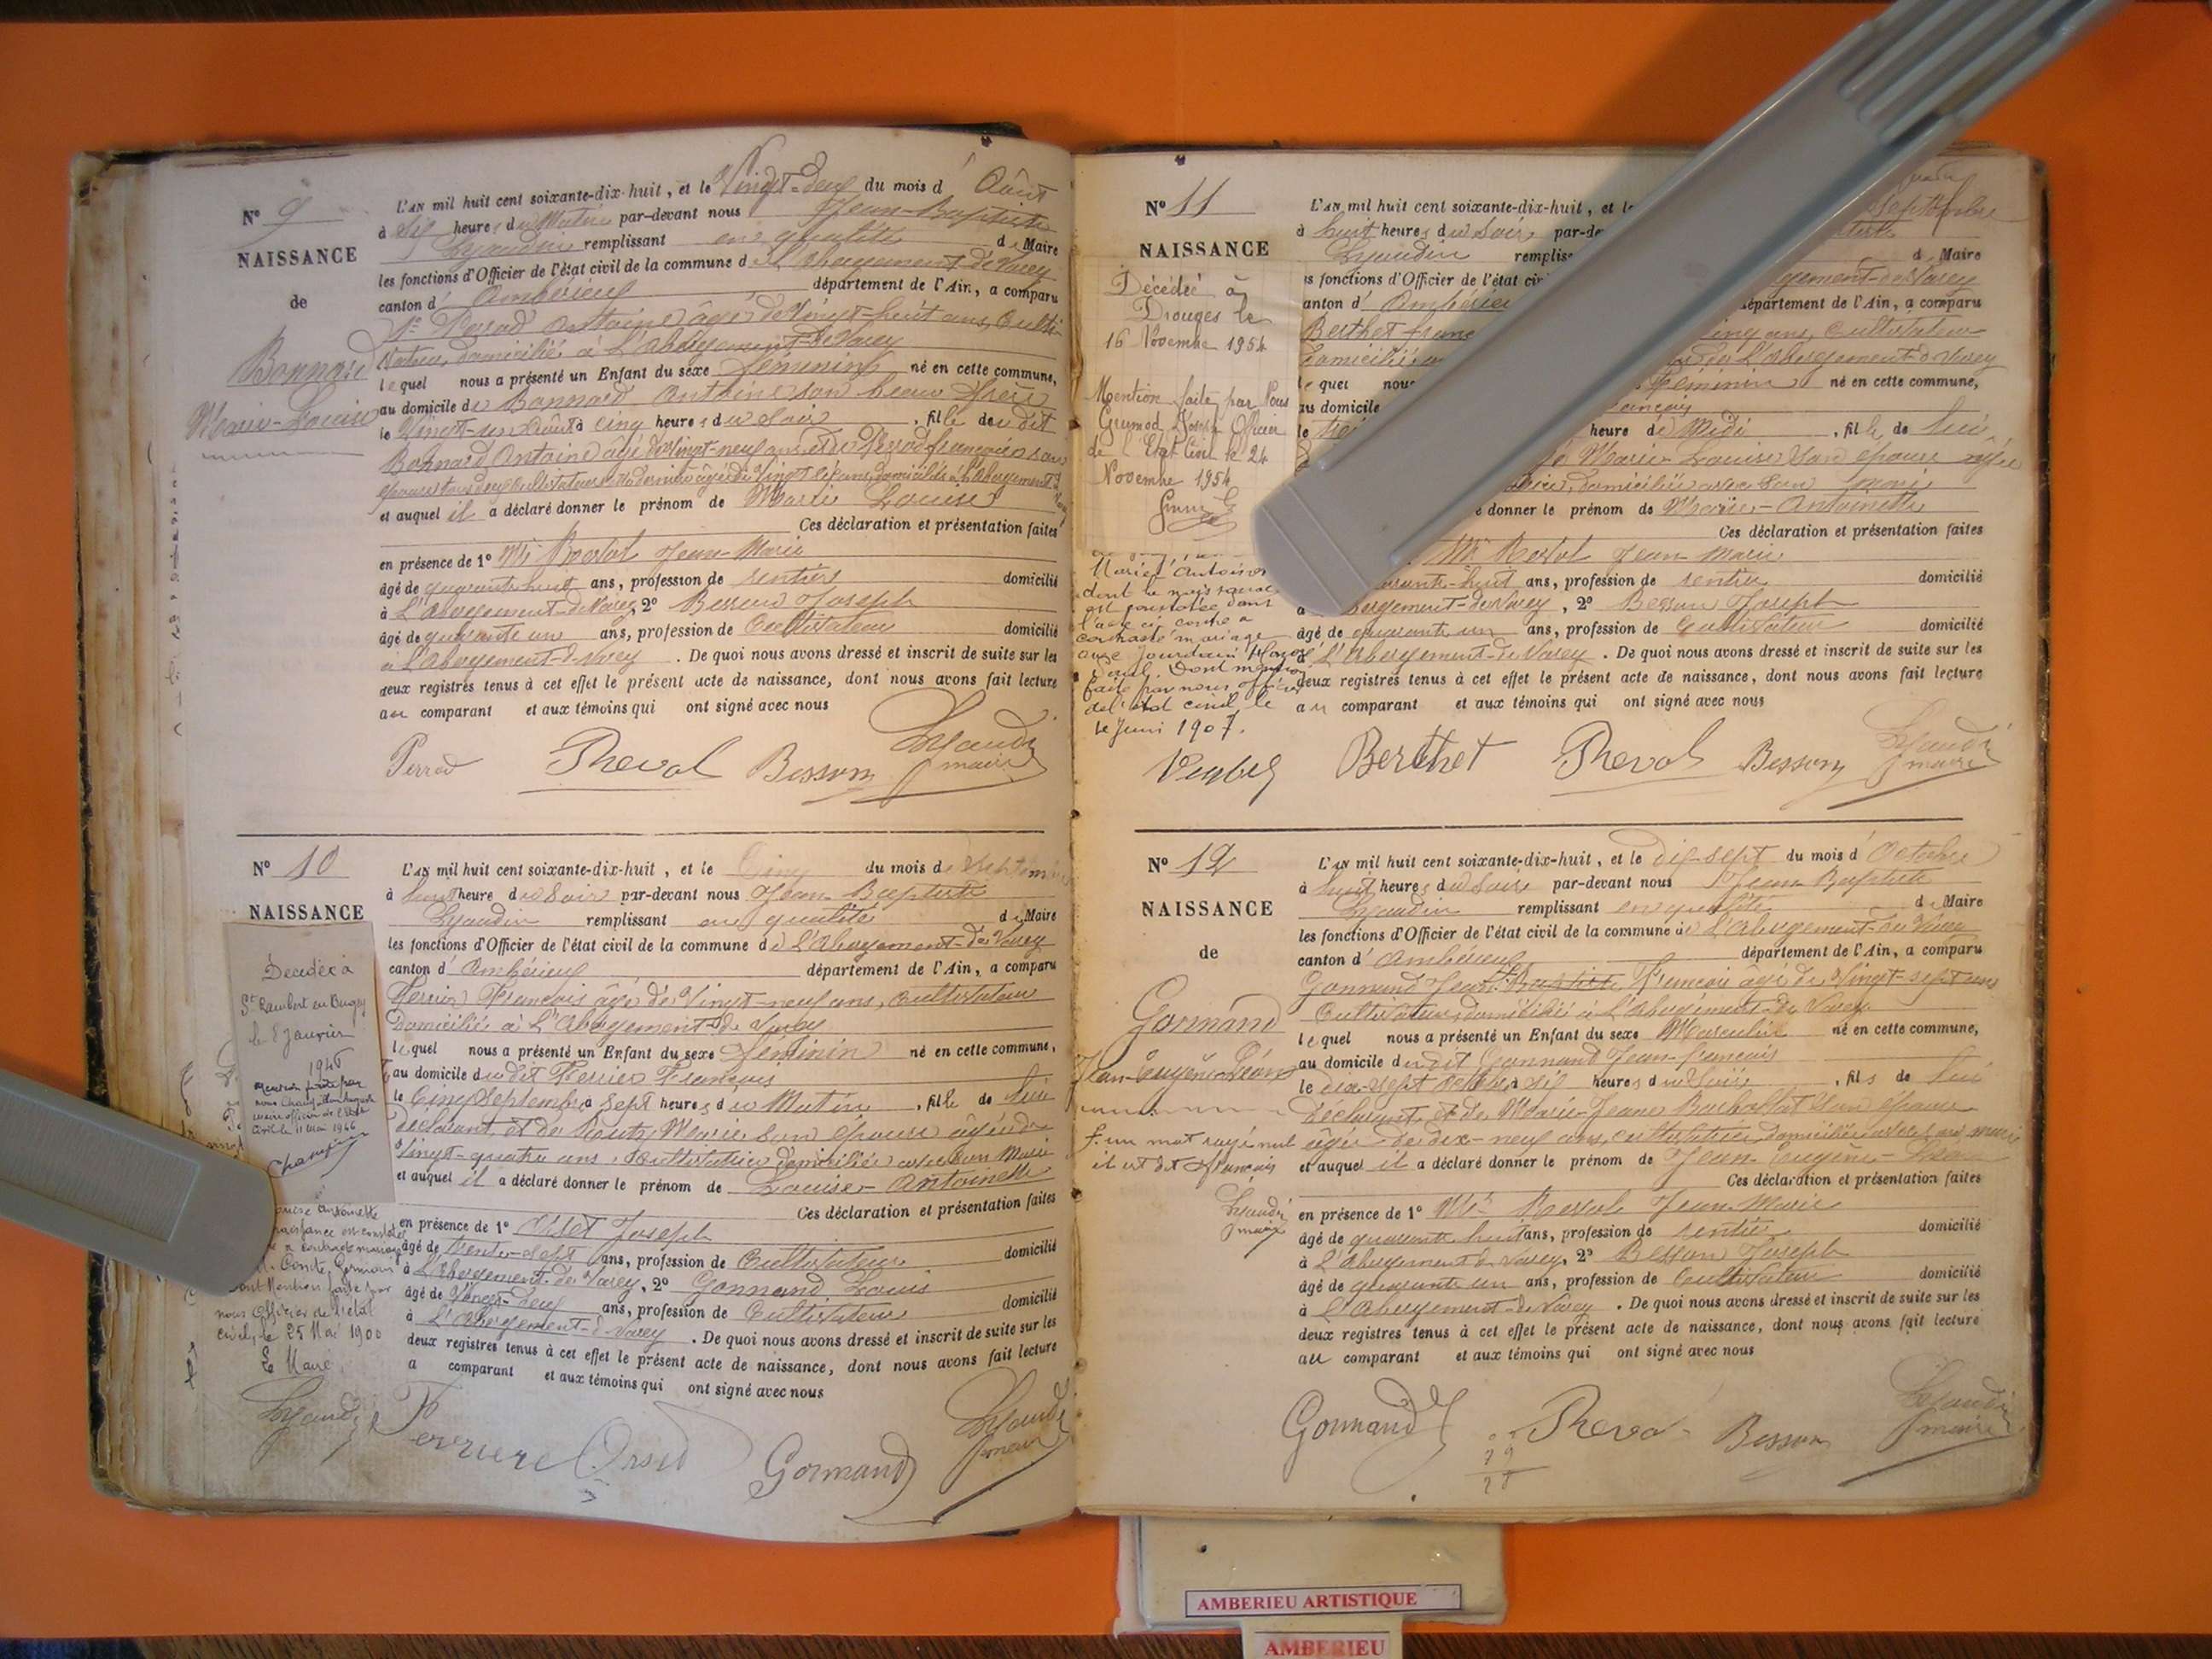 N° 9
NAISSANCE
de
Bonnard
Marie-Louise
L'AN mil huit cent soixante-dix-huit, et le Vingt-deux du mois d' Août
à six heures du Matin par-devant nous Jean-Baptiste
Lyaudin remplissant en qualité de Maire
les fonctions d'Officier de l'état civil de la commune de L'Abergement-de-Varey
canton d' Ambérieux département de l'Ain, a comparu
Antoine âgé de Vingt-huit ans, Culti-
vateur, domicilié à L'Abergement-de-Varey
lequel nous a présenté un Enfant du sexe Féminin né en cette commune,
au domicile de Bonnard Antoine son beau frère
le Vingt-un Août à cinq heures du soir, fille du dit
Bonnard Antoine âgé de Vingt-neuf ans et de Perrod Françoise son
épouse tous deux cultivateurs domiciliés à L'Abergement de
et auquel il a déclaré donner le prénom de Marie Louise
Ces déclaration et présentation faites
en présence de 1° Mr Jean-Marie
âgé de quarante-huit ans, profession de rentier domicilié
à L'Abergement-de-Varey, 2° Besson Joseph
âgé de quarante un ans, profession de Cultivateur domicilié
à L'Abergement-de-Varey. De quoi nous avons dressé et inscrit de suite sur les
deux registres tenus à cet effet le présent acte de naissance, dont nous avons fait lecture
au comparant et aux témoins qui ont signé avec nous
Perrod Besson Lyaudin maire
N° 10
NAISSANCE
Décédée à
St Rambert en Bugey
le 8 Janvier
1946
civil le 11 Mai 1946
L'AN mil huit cent soixante-dix-huit, et le Cinq du mois de Septembre
à huit heure du Soir par-devant nous Jean-Baptiste
Lyaudin remplissant en qualité de Maire
les fonctions d'Officier de l'état civil de la commune de L'Abergement-de-Varey
canton d' Ambérieux département de l'Ain, a comparu
François âgé de Vingt-neuf ans, Cultivateur
domicilié à L'Abergement-de-Varey
lequel nous a présenté un Enfant du sexe Féminin né en cette commune,
au domicile du dit François
le Cinq Septembre à sept heures du Matin, fille de lui
déclarant et de Marie son épouse âgée de
Vingt-quatre ans, Cultivatrice domiciliée avec son Mari
et auquel il a déclaré donner le prénom de Louise-Antoinette
Ces déclaration et présentation faites
en présence de 1° Orset Joseph
âgé de trente-sept ans, profession de Cultivateur domicilié
à L'Abergement-de-Varey, 2° Gonnand Louis
âgé de Vingt-deux ans, profession de Cultivateur domicilié
à L'Abergement-de-Varey. De quoi nous avons dressé et inscrit de suite sur les
deux registres tenus à cet effet le présent acte de naissance, dont nous avons fait lecture
a comparant et aux témoins qui ont signé avec nous
Antoinette
naissance est constatée
a contracté mariage
Comte, Germain
dont Mention faite par
nous officier de l'état
civil, le 25 Mai 1900
Le Maire
Lyaudin Orset Gonnand Lyaudin maire
N° 11
NAISSANCE
Décédée à
Drouges le
16 Novembre 1954
Mention faite par Nous
Joseph Officier
de l'Etat Civil le 24
Novembre 1954
L'AN mil huit cent soixante-dix-huit, et l
Septembre
à huit heures du Soir par-de
Lyaudin remplis d Maire
s fonctions d'Officier de l'état civ gement-de-Varey
anton d' Ambérieu département de l'Ain, a comparu
Berthet Franç cinq ans, Cultivateur
domicilié L'Abergement-de-Varey
lequel nous Féminin né en cette commune,
au domicile ançois
le heure de Midi, fille de lui
Marie-Louise son épouse âgée
domiciliée avec son mari
donner le prénom de Marie-Antoinette
Ces déclaration et présentation faites
Mr Jean Marie
rante-huit ans, profession de rentier domicilié
à bergement-de-Varey, 2° Besson Joseph
âgé de quarante un ans, profession de Cultivateur domicilié
à L'Abergement-de-Varey. De quoi nous avons dressé et inscrit de suite sur les
deux registres tenus à cet effet le présent acte de naissance, dont nous avons fait lecture
au comparant et aux témoins qui ont signé avec nous
Marie Antoinet
dont la naissance
est constatée dans
l'acte ci contre a
contracté mariage
avec Jourdain
Dont mention
faite par nous officier
de l'état civil, le
Juin 1907.
Berthet Besson Lyaudin maire
N° 12
NAISSANCE
de
Gonnand
Jean-Eugène-Léon
L'AN mil huit cent soixante-dix-huit, et le dix-sept du mois d' Octobre
à huit heures du Soir par-devant nous Jean-Baptiste
Lyaudin remplissant en qualité de Maire
les fonctions d'Officier de l'état civil de la commune de L'Abergement-de-Varey
canton d' Ambérieux département de l'Ain, a comparu
Gonnand Jean-Baptiste François âgé de Vingt-sept ans
Cultivateur, domicilié à L'Abergement-de-Varey
lequel nous a présenté un Enfant du sexe Masculin né en cette commune,
au domicile du dit Gonnand Jean-François
le dix-sept Octobre à six heures du Soir, fils de lui
déclarant et de Marie-Jeanne son épouse
âgée de dix-neuf ans, cultivatrice, domiciliée avec son mari
et auquel il a déclaré donner le prénom de Jean-Eugène-Léon
Ces déclaration et présentation faites
un mot rayé nul
il est dit François
Lyaudin
maire
en présence de 1° Mr Jean-Marie
âgé de quarante huit ans, profession de rentier domicilié
à L'Abergement-de-Varey, 2° Besson Joseph
âgé de quarante un ans, profession de Cultivateur domicilié
à L'Abergement-de-Varey. De quoi nous avons dressé et inscrit de suite sur les
deux registres tenus à cet effet le présent acte de naissance, dont nous avons fait lecture
au comparant et aux témoins qui ont signé avec nous
Gonnand Besson Lyaudin maire
AMBERIEU ARTISTIQUE
AMBERIEU